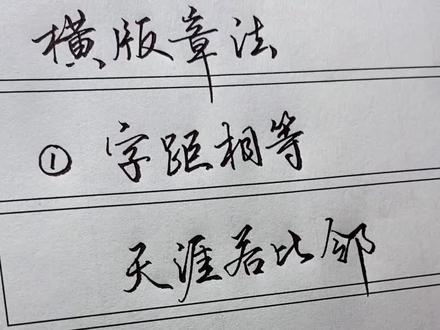 横版章法
① 字距相等
天涯若比邻